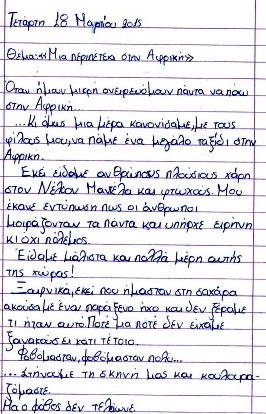 Τετάρτη 18 Μαρτίου 2015
Θέμα: «Μια περιπέτεια στην Αφρική»
Όταν ήμουν μικρή ονειρευόμουν πάντα να πάω
στην Αφρική...
...Κι όμως μια μέρα κανονίσαμε, με τους
φίλους μου, να πάμε ένα μεγάλο ταξίδι στην
Αφρική.
Εκεί είδαμε ανθρώπους πλούσιους χάρη
στον Νέλσον Μαντέλα και φτωχούς. Μου
έκανε εντύπωση πως οι άνθρωποι
μοιράζονταν τα πάντα και υπήρχε ειρήνη
κι όχι πόλεμος.
Είδαμε μάλιστα και πολλά μέρη αυτής
της χώρας!
Ξαφνικά, εκεί που ήμασταν στη σαχάρα
ακούσαμε έναν παράξενο ήχο και δεν ξέραμε
τι ήταν αυτό. Ποτέ μα ποτέ δεν είχαμε
ξανακούσει κάτι τέτοιο.
Φοβόμασταν, φοβόμασταν πολύ...
...Στήναμε τη σκηνή μας και κουλουρια-
ζόμαστε.
Μα ο φόβος δεν τελείωνε.